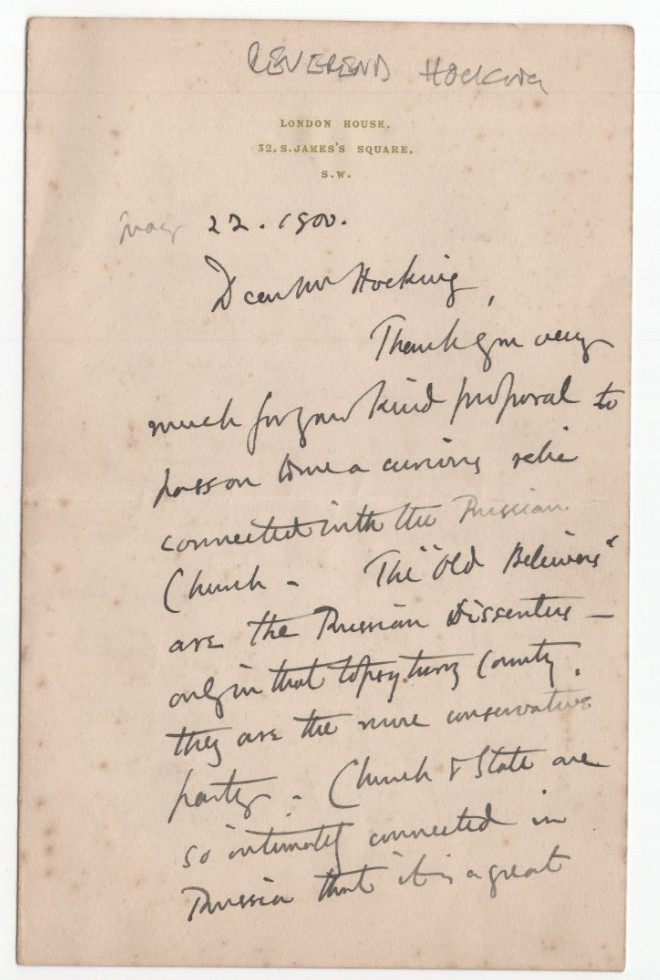 REVEREND Hocking
LONDON HOUSE,
32, S. JAMES'S SQUARE,
S.W.
May 22. 1900.
Dear Mr Hocking,
Thank you very
much for your kind proposal to
pass on to me a curious relic
connected with the Russian
Church - The "Old Believers"
are the Russian Dissenters —
only in that topsy turvy County,
they are the more conservative
party - Church & State are
so intimately connected in
Russia that it is a great